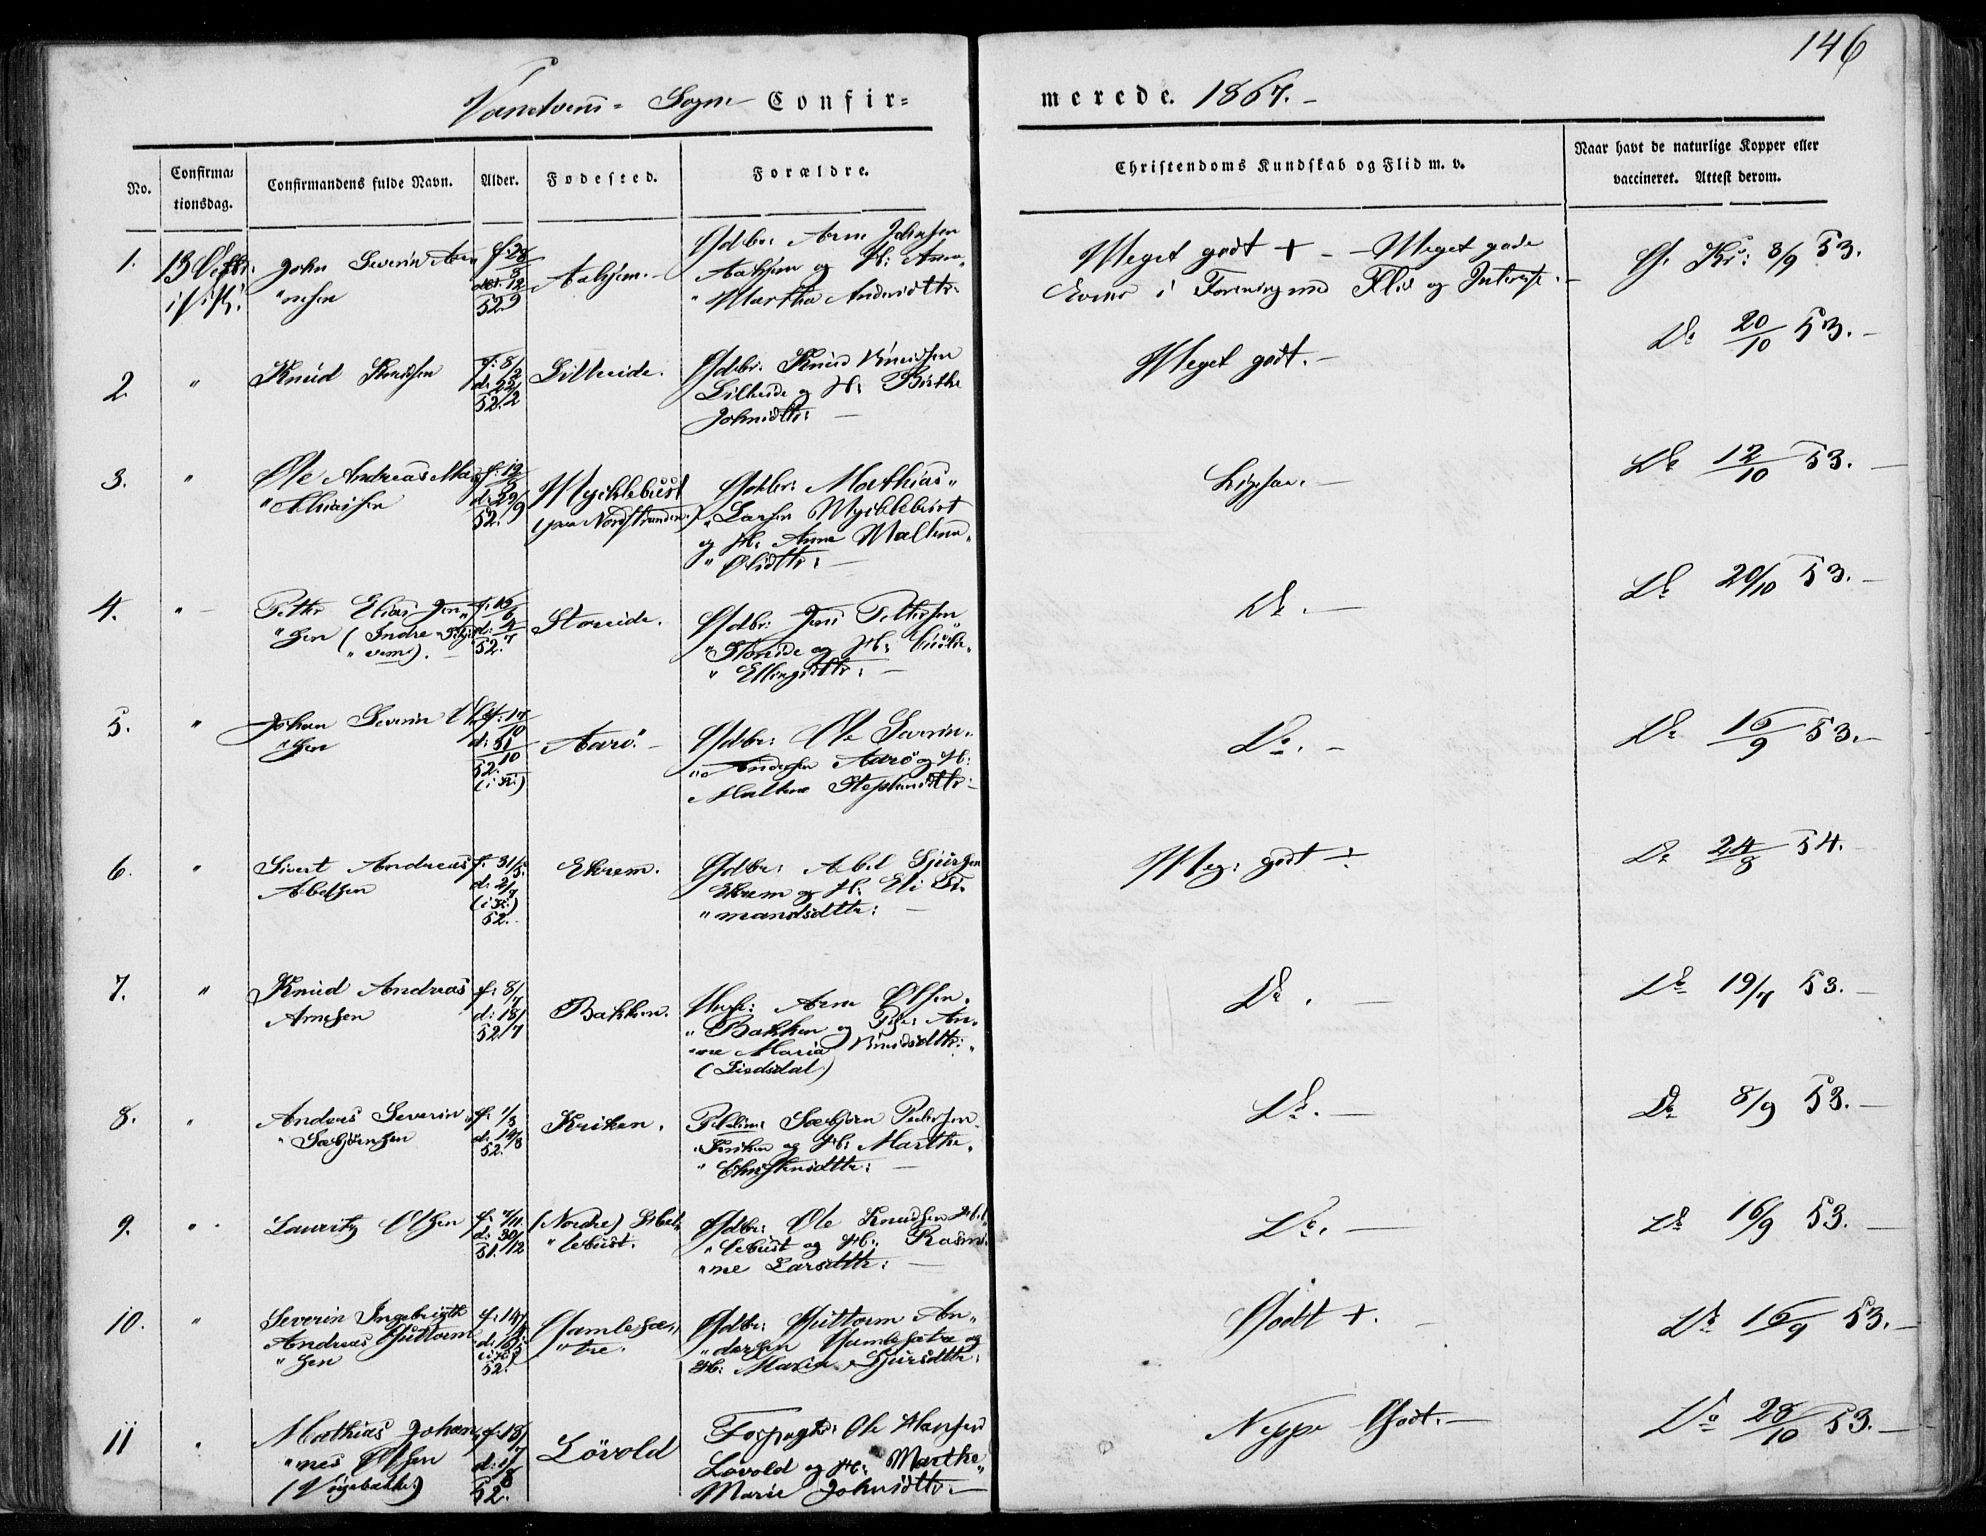 146
Vandvens Sogn Confir=
merede. 1867.
No.
Confirma=
tionsdag.
Confirmandens fulde Navn.
Alder.
Fødested.
Forældre.
Christendoms Kundskab og Flid m. v.
Naar havt de naturlige Kopper eller
vaccineret. Attest derom.
1.
John Severin Aar
"onsen
52
Aahjem.
Gdbr: Arne Johnsen
Aahjem og H: Anne
" Martha Andersdtr:
Meget godt + - Meget gode
Evner i Forening med Flid og Interesse.
Kr: 8/9 53.
2.
"
Knud Knudsen
f: 8/2
d: 22/2
52.
Lilleeide.
Gdbr: Knud Knudsen
Lilleeide og H: Birthe
Johnsdtr:
Meget godt.
Do 20/10 53.
3.
"
Ole Andreas Ma
"thiassen
f: 12/9
d: 29/9
52.
Myklebust
(paa Nordstranden.)
Gdbr: Mathias
" Larsen Myklebust
og H: Anne Maltena
" Olsdtr:
Ligesaa.
Do 12/10 53.
4.
"
Petter Elias Jen"
"sen (Indre
52.
Storeide.
Gdbr: Jens Pettersen
" Storeide og H:
" Ellingsdtr:
Do.
Do 20/10 53.
5.
"
Johan Severin Ol
"sen
f: 17/10
d: 31/10
52.
Aarö.
Gdbr: Ole Severin
" Andersen Aarö og H:
Maltena Stephensdtr:
Do.
Do 16/9 53.
6.
"
Sivert Andreas
Abelsen
f. 31/5.
52.
Ekrem.
Gdbr: Abel Sjursen
Ekrem og H: Eli
" mandsdtr:
Meg: godt ÷
Do 24/8 54.
7.
"
Knud Andreas
Arnesen
f: 8/7
d: 18/7
52
Bakken.
Arne Olsen
" Bakken og An
"ne Maria Knudsdtr:
(Lisdsdal)
Do.
Do 19/7 53.
8.
"
Anders Severin
" Sæbjörnsen
f: 1/8
d: 14/8
52.
Kriken.
Sæbjörn Pedersen
Kriken og H: Marthe
" Christensdtr:
Do.
Do 8/9 53.
9.
"
Lauritz Olsen
d: 30/12
51.
(Nordre)
" lebust.
Gdbr: Ole Knudsen
" lebust og H: Rasmi
"ne Larsdtr:
Do.
Do 16/9 53.
10.
"
Severin Ingebrigth
Andreas Guttorm
" sen
52.
Gamlesæ
"tre.
Gdbr: Guttorm An"
"dersen Gamlesætre og
H: Marie Sjursdtr:
Godt +.
Do 16/9 53.
11
Mathias Johan
"nes Olsen
f: 18/7
d: 1/8
52.
Lövold
Ole Hansen
Lovold og H: Marthe
Marie Johnsdtr:
Neppe Godt.
Do 28/10 53.